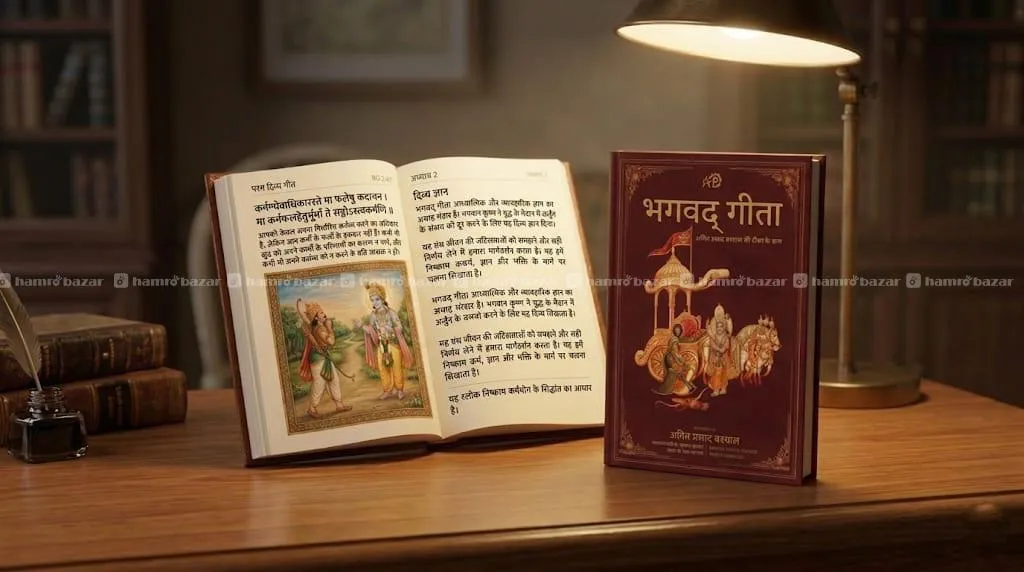 परम दिव्य गीत
BG 2.47
कर्मण्येवाधिकारस्ते मा फलेषु कदाचन ।
मा कर्मफलहेतुर्भूर्मा ते सङ्गोऽस्त्वकर्मणि ॥
आपको केवल अपना निर्धारित कर्तव्य करने का अधिकार
है, लेकिन आप कर्मों के फलों के हकदार नहीं हैं। कभी भी
खुद को अपने कार्यों के परिणामों का कारण न
कभी भी उनके कर्तव्य को न करने के प्रति आसक्त न हों।
अध्याय 2
दिव्य ज्ञान
भगवद् गीता आध्यात्मिक और व्यावहारिक ज्ञान का
अथाह भंडार है। भगवान कृष्ण ने युद्ध के मैदान में अर्जुन
के संशय को दूर करने के लिए यह दिव्य ज्ञान दिया।
यह ग्रंथ जीवन की जटिलताओं को समझने और सही
निर्णय लेने में हमारा मार्गदर्शन करता है। यह हमें
निष्काम कर्म, ज्ञान और भक्ति के मार्ग पर
चलना सिखाता है।
भगवद् गीता आध्यात्मिक और व्यावहारिक ज्ञान का
भंडार है। भगवान कृष्ण ने युद्ध के मैदान में
अर्जुन के करने के लिए यह दिव्य
यह ग्रंथ जीवन की जटिलताओं को समझने और सही
निर्णय लेने में हमारा मार्गदर्शन करता है। यह हमें
निष्काम कर्म, ज्ञान और भक्ति के मार्ग पर चलना
सिखाता है।
यह श्लोक निष्काम कर्मयोग के सिद्धांत का आधार
है।
भगवद् गीता
प्रसाद
hamro bazar hamro bazar hamro bazar hamro bazar hamro bazar hamro bazar hamro bazar hamro bazar